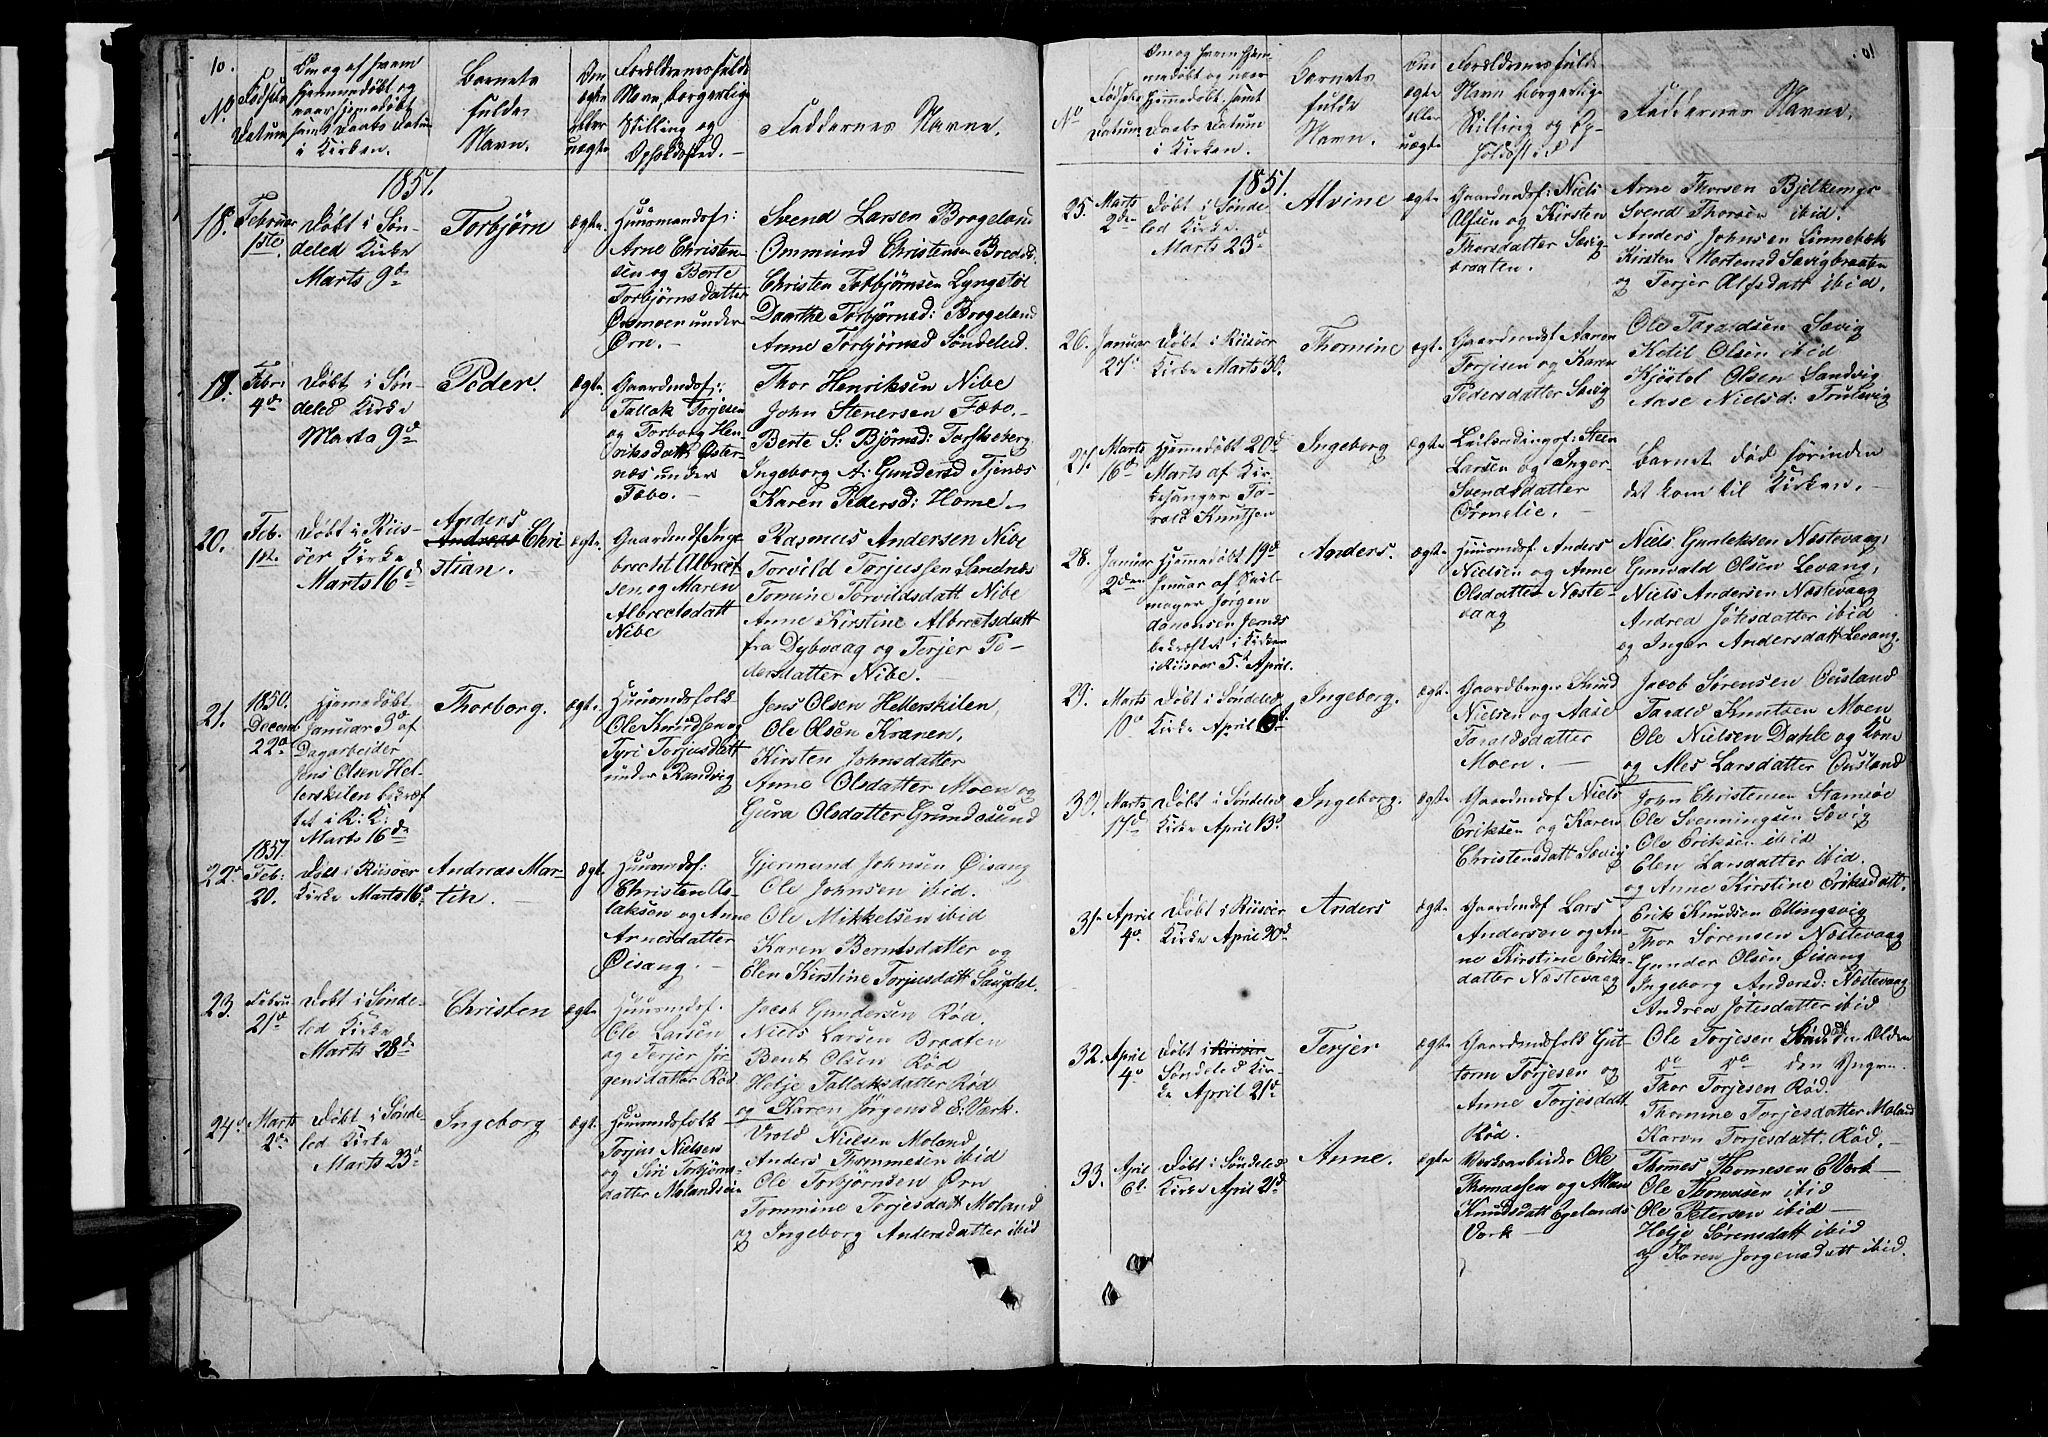 10.
No
Fødsels
Datum
Om og af hvem
hjemmedøbt og
naar hjemedøbt
samt Daabs Datum
i Kirken.
Barnets
fulde
Navn.
Om
ægte
eller
uægte
Forældrenes fulde
Navn, borgerlige
Stilling og
Opholdsted.
Faddernes Navne.
1851.
18.
Februar
1ste
Døbt i Søn-
deled Kirke
Marts 9de
Torbjørn
ægte.
Huusmandsf:
Arne Christen-
sen og Berte
Torbjørnsdatter
under
Ørn.
Svend Larsen Brogeland
Ommund Christensen
Christen Torbjørnsen Lyngstøl
Daarthe Torbjørnsd: Brogeland
Anne Torbjørnsd Søndeled.
19.
Febr:
4de
Døbt i Søn-
deled Kirke
Marts 9de
Peder.
ægte
Gaardmdsf:
Tallak Torjesen
og Torborg Hen-
riksdatt Øster-
næs under
Fæbo.
Thor Henriksen Nibe
John Stenersen Fæbo.
Berte S: Bjørnsd:
Ingeborg A: Gundersd Tjenæs
Karen Pedersd: Home.
20.
Feb.
12.
Døbt i Riis-
øer Kirke
Marts 16d
Anders
Andreas Chri
stian.
ægte.
Gaardmdsf Inge
brecht Albret
sen og Maren
Albrectsdatt
Nibe
Rasmus Andersen Nibe
Torvild Torjussen Sandnæs
Tomine Torvildsdatt Nibe
Anne Kirstine Albretsdatt
fra Dybvaag og Terjer Pe-
dersdatter Nibe.
21.
1850.
Decemb
22d
Hjemedøbt
Januar 3d af
Dagarbeider
Jens Olsen Hel-
lerskilen bekræf
tet i R: K:
Marts 16de
Thorborg.
ægte.
Huusmdsfolk
Ole Knudsen og
Tyri Torjusdatt
under Randvig
Jens Olsen Hellerskilen
Ole Olsen Kranen,
Kirsten Johnsdatter
Anne Olsdatter Moen og
Gura Olsdatter Grundesund
1851.
22.
Feb:
20.
Døbt i Riisøer
Kirke Marts 16d
Andreas Mar-
tin.
ægt.
Huusmdsf:
Christen As-
laksen og Anne
Arnesdatter
Øisang.
Gjermund Johnsen Øisang
Ole Johnsen ibid.
Ole Mikkelsen ibid
Karen Berntsdatter og
Elen Kirstine Torjesdatt Saugdal.
23.
Febru
21d
Døbt i Sønde-
led Kirke
Marts 28de
Christen
ægte
Huusmdsf.
Ole Larsen
og Terjer Jør-
gensdatter Rød
Jacob Gundersen Rød.
Niels Larsen Braaten
Bent Olsen Rød
Helje Tallaksdatter Rød
og Karen Jørgensd E: Værk.
24d
Marts
2de
Døbt i Sønde-
led Kirke
Marts 23d
Ingeborg
ægt.
Huusmdsfolk
Torjus Nielsen
og Siri Torbjørns-
datter Molandseie
Vrold Nielsen Moland
Anders Thommesen ibid
Ole Torbjørnsen Ørn
Tommine Torjesdatt Moland
og Ingeborg Andersdatter ibid
10.
No
Fødsels
Datum
Om og hvem hjem-
medøbt og naar
hjemedøbt, samt
Daabs Datum
i Kirken.
Barnets
fulde
Navn.
Om
ægte
eller
uægte
Forældrenes fulde
Navn borgerlige
Stilling og Op-
holdssted
Faddernes Navne.
1851.
25.
Marts
2de
Døbt i Sønde
led Kirke.
Marts 23d
Alvine
ægte
Gaardmdsf: Niels
Alfsen og Kirsten
Thorsdatter Sævig
braaten.
Arne Thorsen
Svend Thorsen ibid.
Anders Johnsen Linnebæk
Kirsten Mortensd Sævigbraaten
og Terjer Alfsdatt ibid.
26.
Januar
27de
Døbt i Riisøer
Kirke Marts 30.
Thomine
ægte
Gaardmdsf Aaren
Torjesen og Karen
Pedersdatter Sævig
Ole Taraldsen Sævig
Ketil Olsen ibid
Kjøstel Olsen Sandvig
Aase Nielsd: Trulsvig
27.
Marts
16d
Hjemedøbt 20d
Marts af Kir-
kesanger Ta-
rald Knutsen
Ingeborg
ægte
Leilændingsf: Steen
Larsen og Inger
Svendsdatter
Ormelie.
Barnet død førinden
det kom til Kirken.
28.
Januar
2den
Hjemmedøbt 19d
Januar af Seil-
mager Jørgen
Jernæs
bekræftet i Kirken
i Riisøer 5t April.
Anders.
ægte.
Huusmdsf. Anders
Nielsen og Anne
Olsdatter Næste-
vaag
Niels Gunleksen Næstevaag,
Gunvald Olsen Levang,
Niels Andersen Næstevaag
Andrea Jølesdatter ibid
og Inger Andersdatt Levang.
29.
Marts
10d
Døbt i Søndeled
Kirke April 6d.
Ingeborg.
ægte
Gaardbruger Knud
Nielsen og Aase
Taraldsdatter
Moen.
Jacob Sørensen Ousland
Tarald Knutsen Moen
Ole Nielsen Dahle og Kone
og Ales Larsdatter Ousland
30.
Marts
17d
Døbt i Søndeled
Kirke April 13d
Ingeborg.
ægte
Gaardmdsf Niels
Eriksen og Karen
Christensdatt Sævig
John Christensen Stamsøe
Ole Svenningsen Sævig
Ole Eriksen ibid
Elen Larsdatter ibid.
og Anne Kirstine Eriksdatt.
31te
April
4d.
Døbt i Riisøer
Kirke April 20d
Anders
ægte
Gaardmdsf Lars
Andersen og An-
ne Kirstine Eriks-
datter Næstevaag
Erik Knudsen Ellingsvig
Thor Sørensen Næstevaag
Gunder Olsen Øisang
Ingeborg Andersd: Næstevaag
Andrea Jølesdatter ibid
32.
April
4d
Døbt i Riisøer
Søndeled Kir-
ke April 21d
Terjer
ægte
Gaardmdsfolk Gut-
torm Torjesen og
Anne Torjesdatt
Rød.
Ole Torjesen Rød den Ældre
do do den Yngre.
Thor Torjesen Rød.
Thomine Torjesdatter Moland
Karen Torjesdatt. Rød.
33.
April
6t.
Døbt i Søndeled
Kirke April 21d
Anne.
ægte
Værksarbeider Ole
Thomassen og
Knudsdatt Egelands
Værk
Thomes Thomesen E Værk
Ole Thomasen ibid
Ole Petersen ibid
Helje Sørensdatt ibid
og Karen Jørgensdatt ibid.